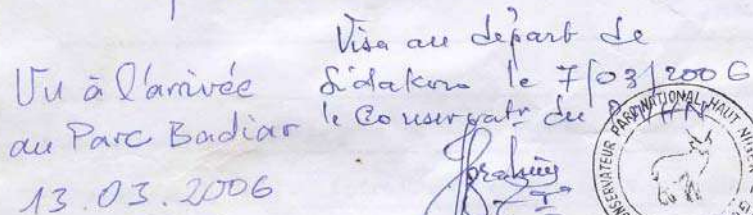 Vu à l'arrivée
au Parc Badiar
13.03.2006
Visa au départ de
Sidakoro le 7/03/2006
le Conservatr du PNHN
Ibrahim
CONSERVATEUR PARC NATIONAL HAUT NIGER